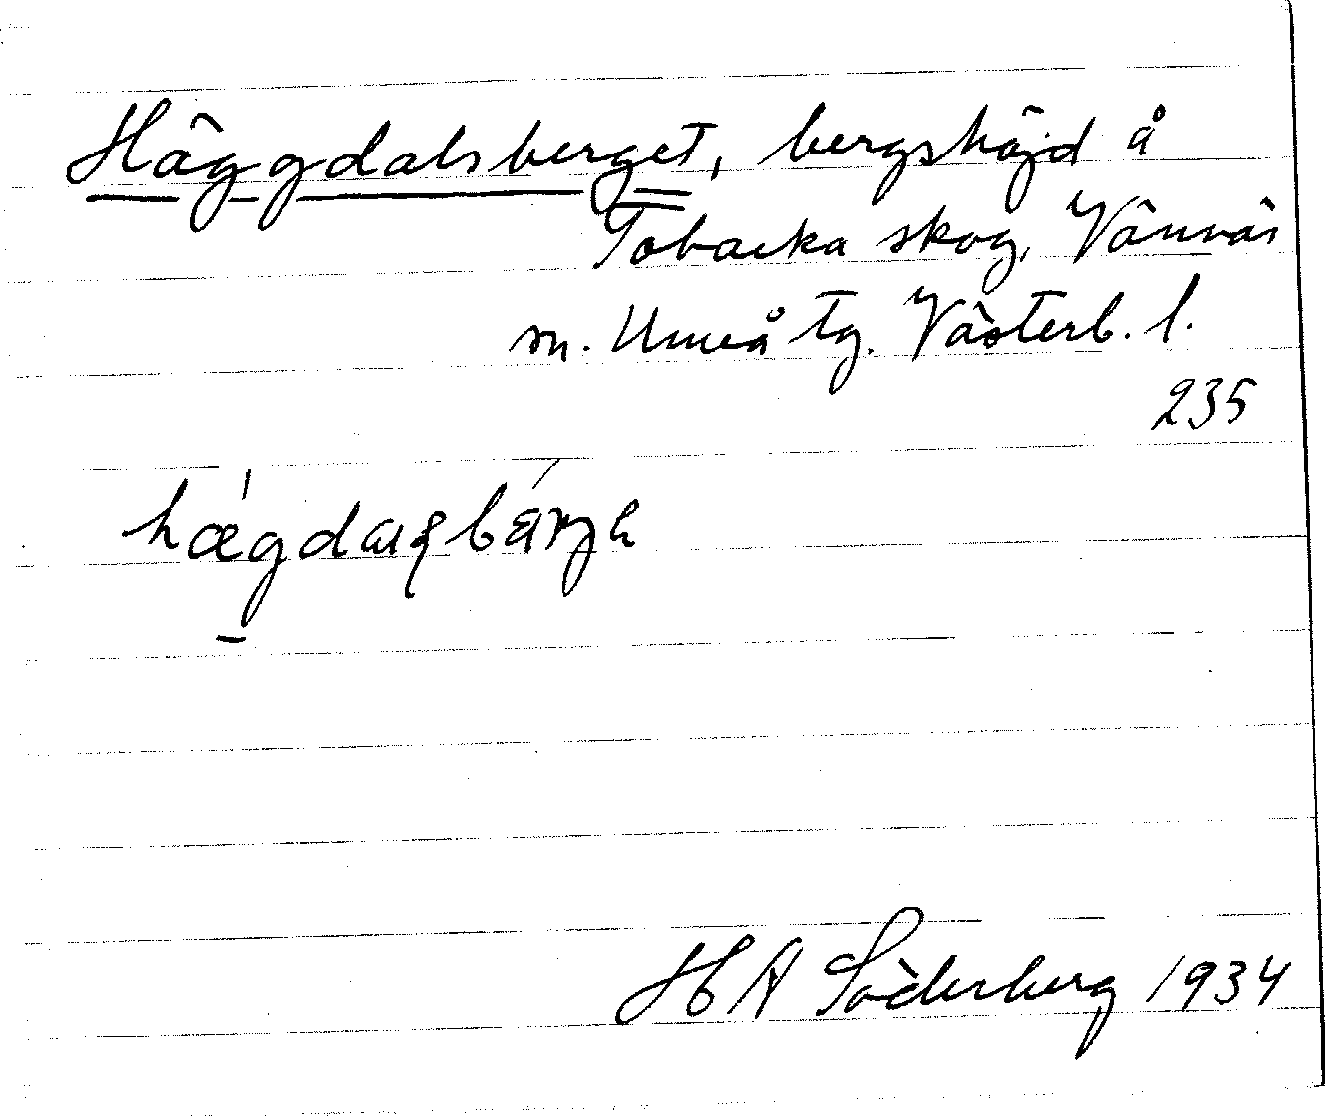 Häggdalsberget, bergshöjd å
Tobacka skog, Vännäs
sn. Umeå tg. Västerb. l.
235
HA Söderberg 1934